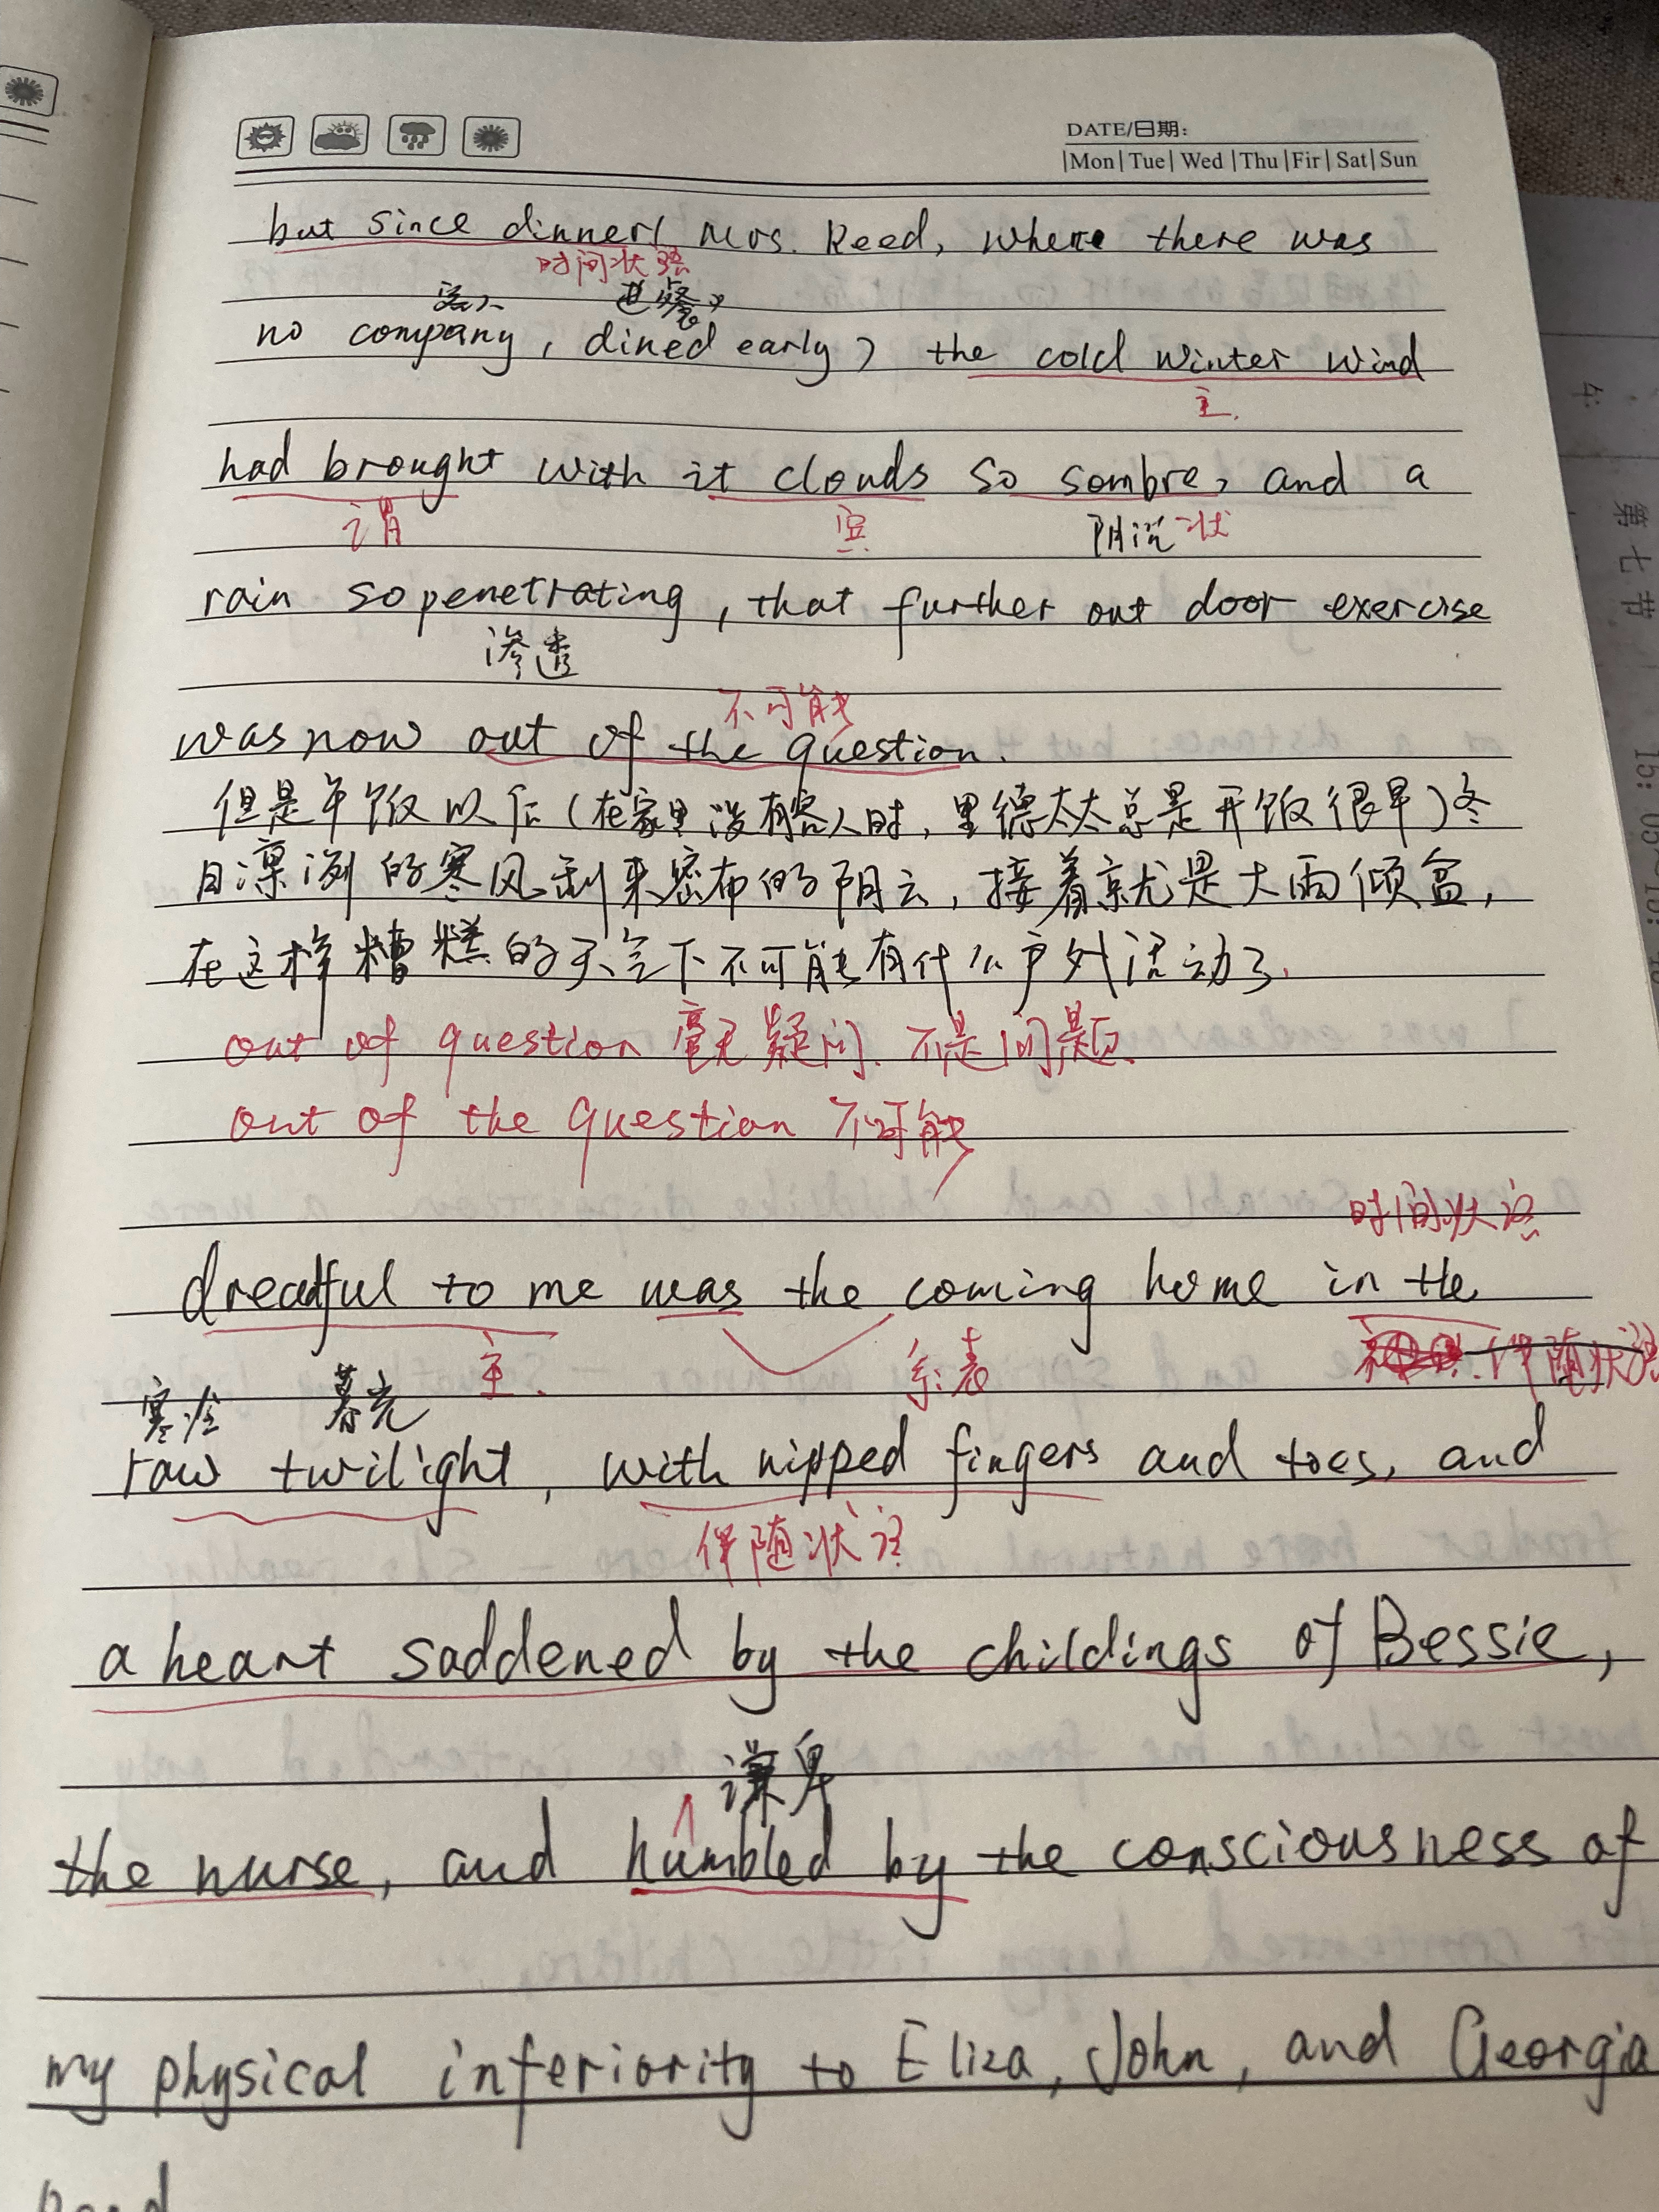 DATE/日期:
|Mon|Tue|Wed|Thu|Fir|Sat|Sun
but since dinner( Mrs. Reed, where there was
时间状语
客人 进餐
no company, dined early) the cold winter wind
主.
had brought with it clouds so sombre, and a
谓 宾 阴沉 状
rain so penetrating, that further out door exercise
渗透
不可能
was now out of the question.
但是午饭以后(在家里没有客人时,里德太太总是开饭很早)冬
日凛冽的寒风刮来密布的阴云,接着就是大雨倾盆,
在这样糟糕的天气下不可能有什么户外活动了.
out of question 毫无疑问. 不是问题.
out of the question 不可能
时间状语
dreadful to me was the coming home in the
主. 系表 伴随状语
寒冷 暮光
raw twilight, with nipped fingers and toes, and
伴随状语
a heart saddened by the childings of Bessie,
谦卑
the nurse, and humbled by the consciousness of
my physical inferiority to Eliza, John, and Georgia
第七节